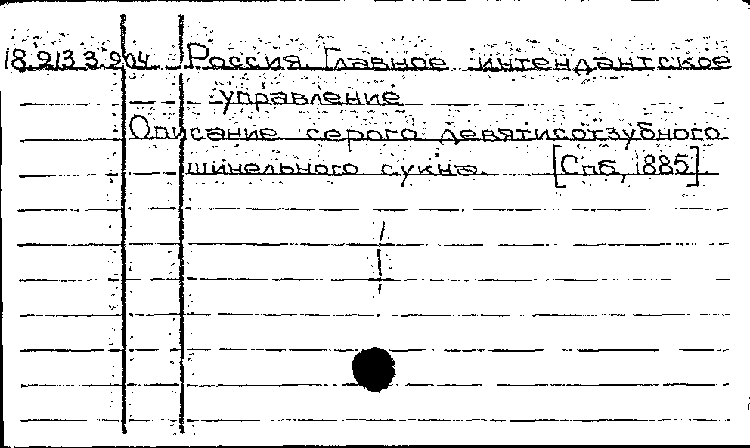 18.213.3.204 Россия. Главное интендантское
управление
Описание серого девятисотзубного
шинельного сукна. [Спб, 1885].